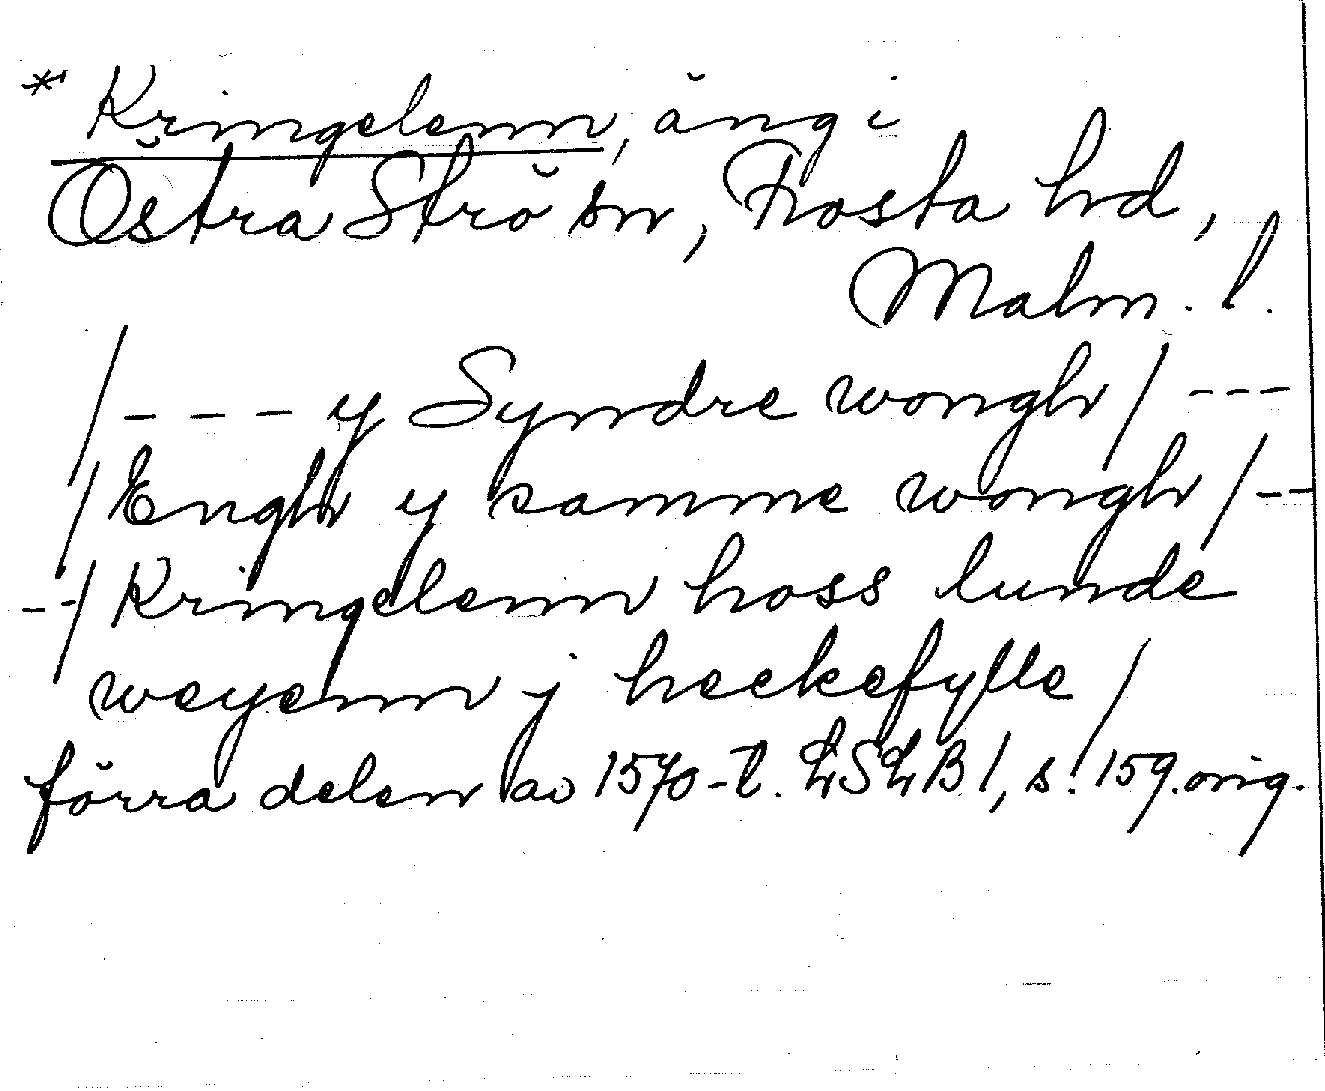 * Kringelenn, äng i
Östra Strö sn, Frosta hd,
Malm. l.
/ - - - y Syndre wongh / - - -
/ Engh y samme wongh / - -
- - / Kringelenn hoss lunde
weyenn j heckefylle /
förra delen av 1570-t. LSLB 1, s. 159. orig.